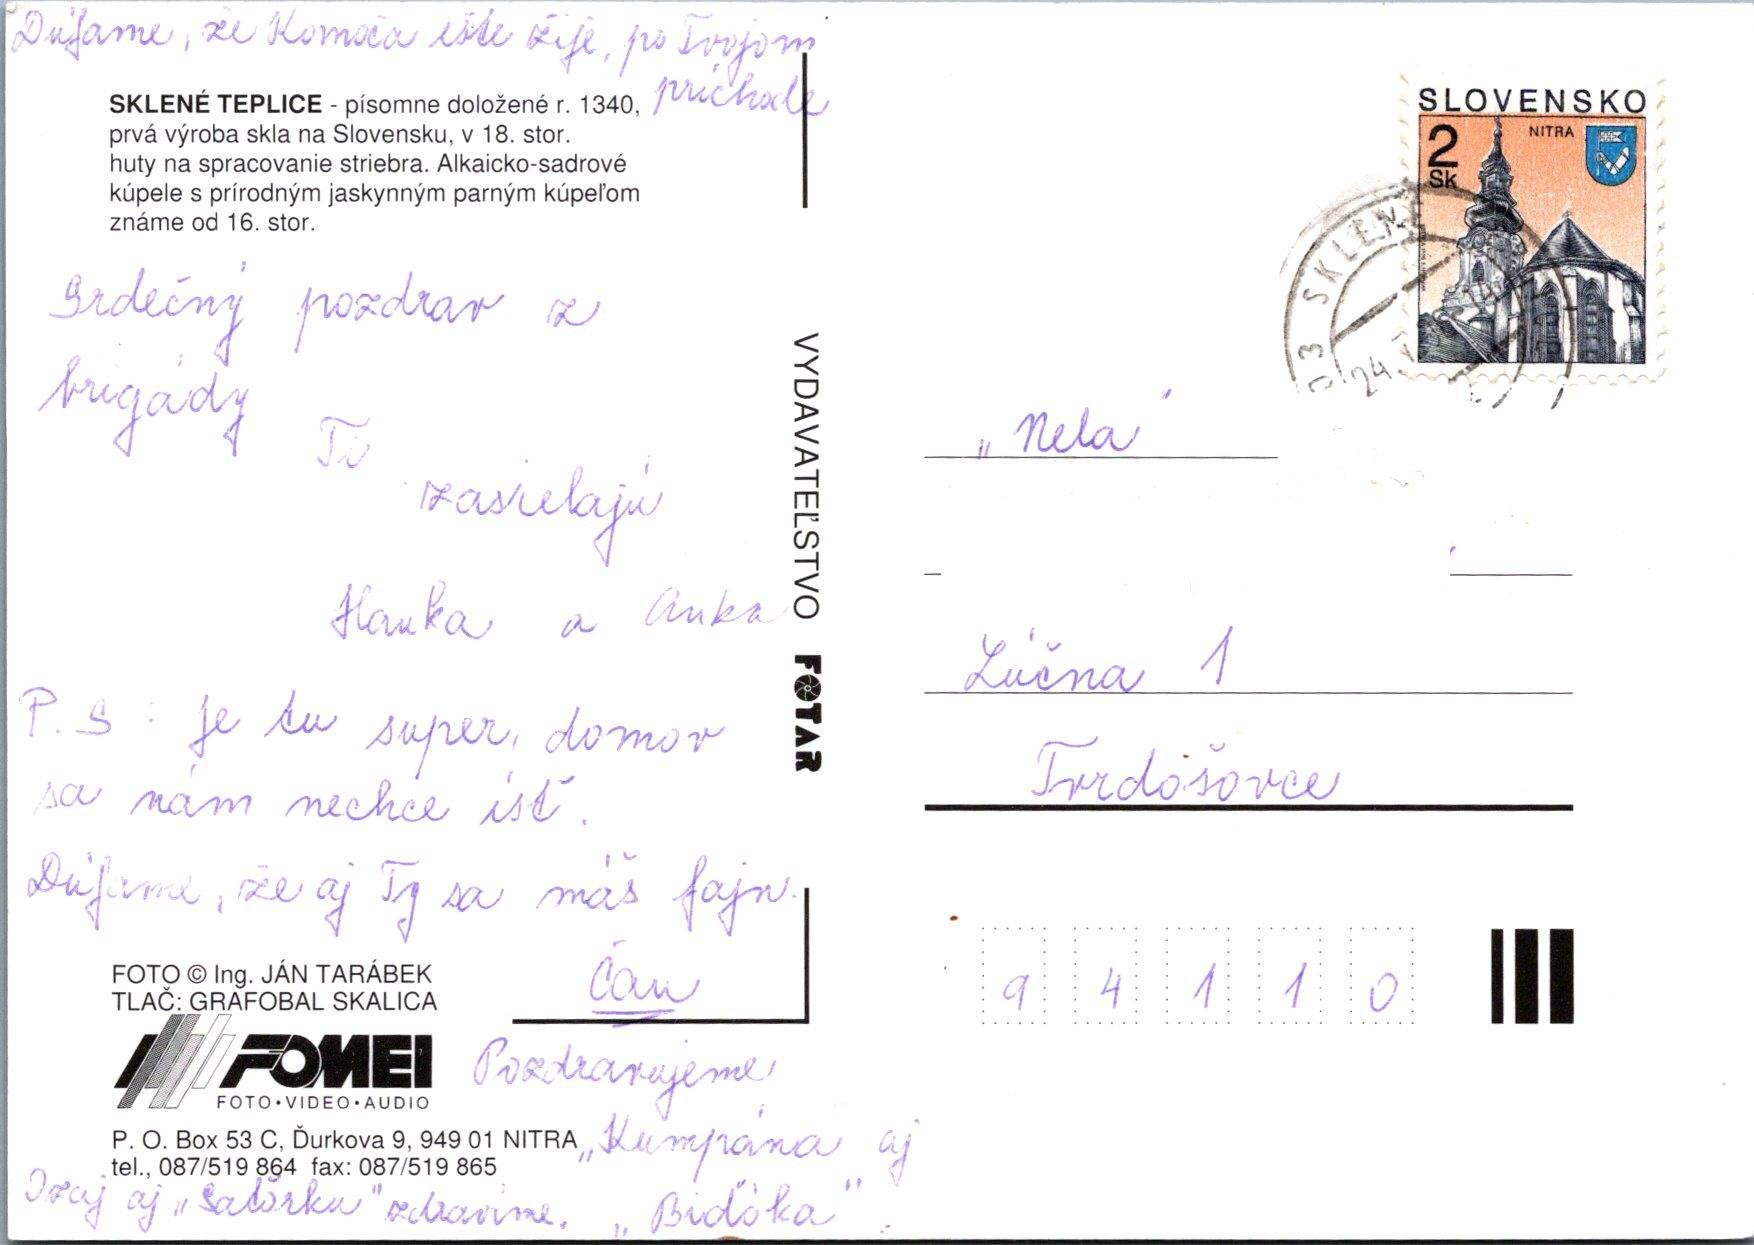 Dúfame, že Komoča ešte žije, po Tvojom
príchode
SKLENÉ TEPLICE - písomne doložené r. 1340,
prvá výroba skla na Slovensku, v 18. stor.
huty na spracovanie striebra. Alkaicko-sadrové
kúpele s prírodným jaskynným parným kúpeľom
známe od 16. stor.
Srdečný pozdrav z
brigády
Ti
zasielajú
Hanka a Anka
P.S: Je tu super, domov
sa nám nechce ísť.
Dúfame, že aj Ty sa máš fajn.
Čau
FOTO © Ing. JÁN TARÁBEK
TLAČ: GRAFOBAL SKALICA
FOMEI
FOTO•VIDEO•AUDIO
P. O. Box 53 C, Ďurkova 9, 949 01 NITRA
tel., 087/519 864 fax: 087/519 865
Pozdravujeme
„Kumpána aj
aj „Saťôrku" zdravíme. „Biďôka"
VYDAVATEĽSTVO FOTAR
SLOVENSKO
2
Sk
NITRA
03 SKLENÉ
24.
„Nela"
Lúčna 1
Tvrdošovce
94110